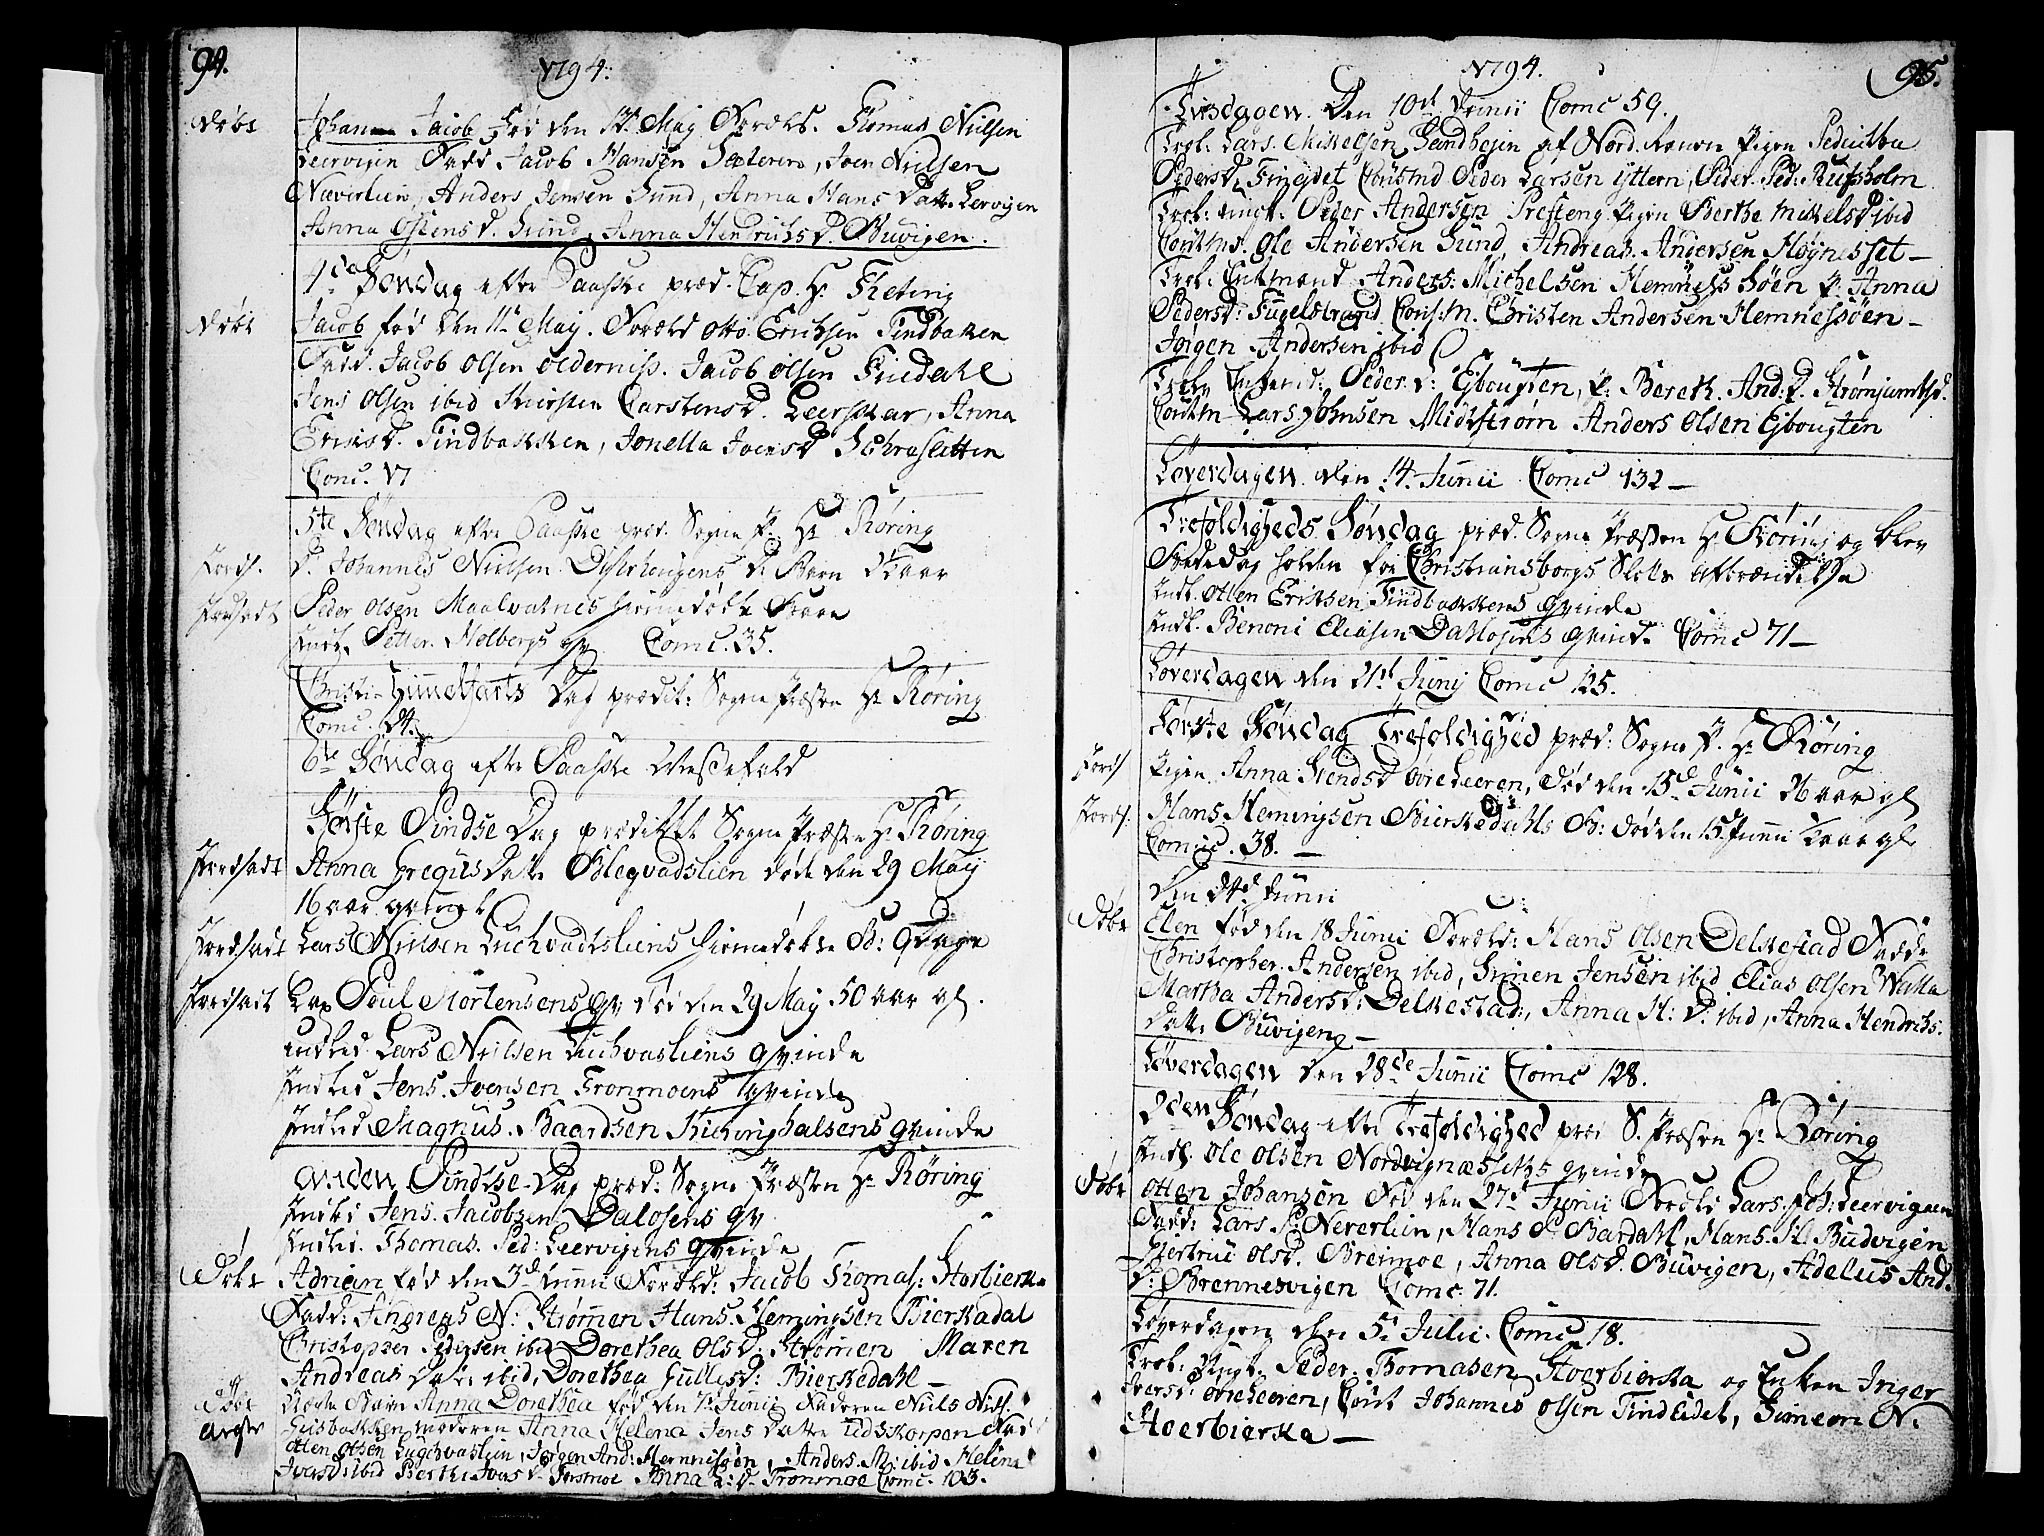 94.
1794.
Døbt Johan Jacob Fød den 12t May Foræld. Thomas Nielsen
Leervigen Fadd Jacob Hansen Sæteren, Joen Nielsen
Næverlien, Anders Jensen Sund, Anna Hans Datt. Lervigen
Anna Ostensd. Sund, Anna Hendrichsd. Buvigen.
4de Søndag efter Paaske præd. Cap. Hr
Døbt Jacob fød den 11te May. Foræld Otto Erichsen Findbaken
Fadd. Jacob Olsen Olderniss. Jacob Olsen Findahl
Jens Olsen ibid Kiersten Carstensd. Leerskar, Anna
Ericsd. Findbakken, Jonella Joensd
Comc. 17
5te Søndag efter Paaske præd. Sogne P. Hr Røring
Jords. P. Johannes Nielsen D. Barn
Jordfæst Peder Olsen Maalvatnes hiemedøbte Barn
Indl. Petter Holbergs qv Comc. 35.
Christi Himmelfarts Dag prædik: Sogne Præsten Hr Røring
Comc. 24.
6te Søndag efter Paaske Messefald
Første Pindse Dag prædikte Sogne Præsten Hr Røring
Jordfæst Anna GregusDatt Blegvadslien døde den 29 May
16 aar gammel
Jordfæst Lars Nielsen Luchvadsliens hiemedøbte B: 9 Dage
Jordfæst Lap Poul Mortensens qv død den 29 May 50 aar gl.
indled Lars Nielsen Luchvasliens qvinde
Indled Jens Joensen Fronmoens qvinde
Indled Magnus Baardsen Kieringhalsens qvinde
Anden Pindse-Dag præd: Sogne Præsten Hr Røring
Indled Jens Jacobsen Dalosens qv
Indled. Thomas Ped: Leervigens qvinde
Døbt Adrian fød den 3d Junii Foræld: Jacob Thomas: Storbierka
Fadd: Andreas N: Strømen Hans Hemingsen Bierkadal
Christopher Pedersen ibid Dorethea Olsd: Strømen Maren
Andreas Datt. ibid, Dorethea Gullesd: Bierkedahl
Døbt uægte Barn Anna Dorethea fød den 1te Junii Faderen Niels Niels.
uægte moderen Anna Helena Jens Datter Udskarpen Fadd
Otten Olsen Lugchvaslien, Jørgen And: Hemnessøen, Anders M: ibid Helena
Iversd: ibid Berthe Iversd. Anna L: D. Fronmoe Comc. 103.
95.
1794.
Tirsdagen Den 10d Junii Comc 59.
Trol: Lars Mikkelsen af Nord Ranen Pigen
Pedersd. Fineidet Caütmd Peder Larsen Ytteren, Peder Ped: Rufsholm
Trol: ungk. Peder Andersen Presteng Pigen Berthe Mikelsd ibid
Cautmd. Ole Andersen Sund, Andreas Andersen Høynesset
Trol: Enkemand Anders Michelsen Hemnessøen P: Anna
Pedersd: Fugelstrand Caut:m. Christen Andersen Hemnessøen
Jørgen Andersen ibid
Trol: Enkemd: Peder L: Ejbougten, P: Bereth And: D.
Cautm Lars Johnsen Midtstrøm Anders Olsen Ejbougten
Løverdagen den 14 Junii Comc 132
Trefoldigheds Søndag præd. Sogne Præsten Hr Røring og blev
Bededag holden for Christiansborgs Slots Afbrændelse
Indl. Otten Eriksen Findbakkens qvinde
Indl. Benoni Eliasen Dalosens qvind. Comc 71
Løverdagen den 21d Junij Comc 125.
Første Søndag Trefoldighed præd: Sogne P. Hr Røring
Jords Pigen Anna Svendsd Øreleeren, død den 15d Junii 26 aar gl
Jords. Hans Hemingsen Bierkedahls B: død den 15 Junii gl
Comuc. 38.
Den 24d Junii
Døbt Elen fød den 18 Junii Foræld: Hans Olsen Delkestad Fadd:
Christopher Andersen ibid, Simen Jensen ibid Elias Olsen Walla
Martha Andersd. Delkestad, Anna H: D. ibid, Anna Hendrichs
Datt. Buvigen
Løverdagen den 28de Junii Comc 128.
2den Søndag efter Trefoldighed præd S. Præsten Hr Røring
Indl. Ole Olsen Nordvignæssetes qvinde
Døbt Otten Johansen Fød den 27d Junii Foræld Lars Joh: Leervigen
Fadd: Lars P: Neverlien, Hans P Bardahl, Hans H Budvigen
Giertrue Olsd. Breimoe, Anna Olsd. Buvigen, Adelus And.
D: Brennesvigen Comc. 71.
Løverdagen den 5t Julii Comc 18.
Trol: Ungk. Peder Thomasen Storbierka og Enken Inger
Iversd: Øreleeren, Caut Johannes Olsen Findeidet, Simeon N.
Storbierka